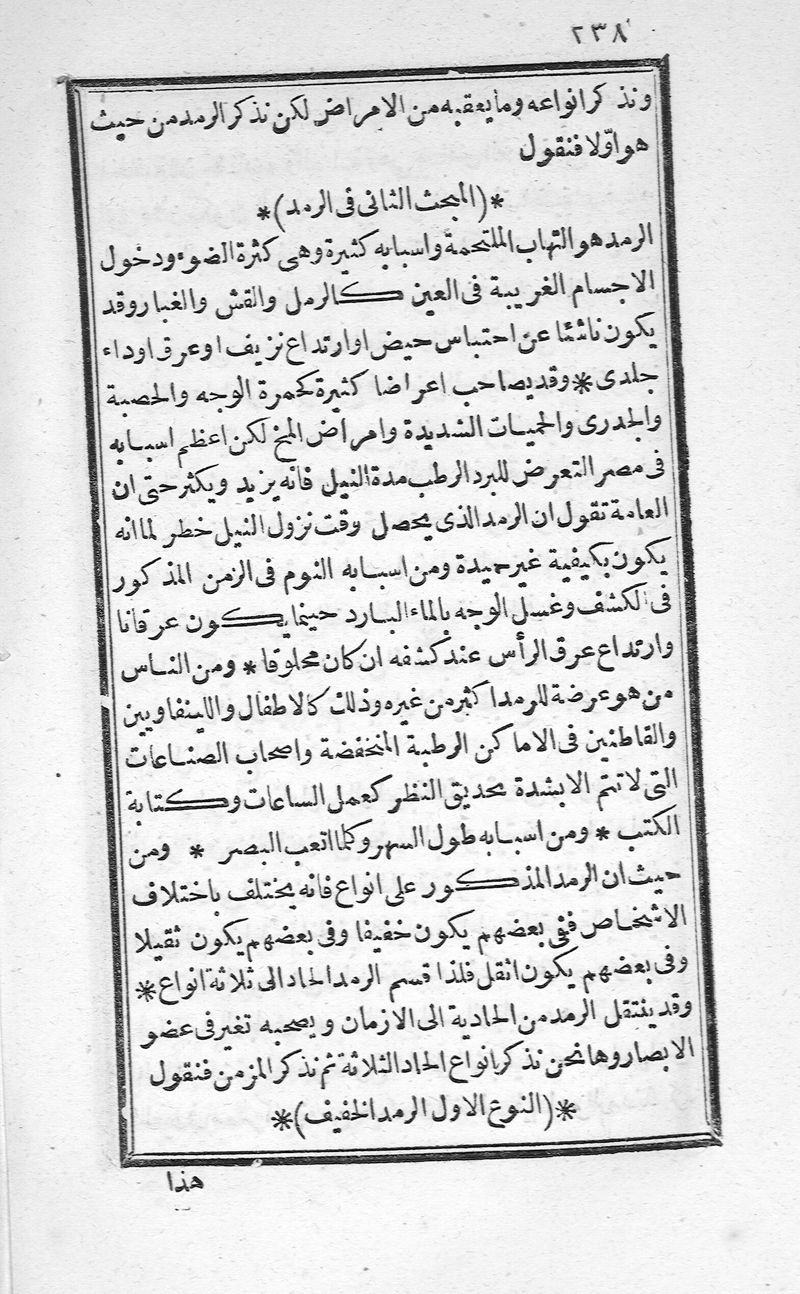 ٢٣٨
ونذكر انواعه وما يعقبه من الامراض لكن نذكر الرمد من حيث
هو اوّلا فنقول
*(المبحث الثانى فى الرمد)*
الرمد هو التهاب الملتحمة واسبابه كثيرة وهى كثرة الضوء ودخول
الاجسام الغريبة فى العين كالرمل والقش والغبار وقد
يكون ناشئا عن احتباس حيض او ارتداع نزيف او عرق او داء
جلدى * وقد يصاحب اعراضا كثيرة كحمرة الوجه والحصبة
والجدرى والحميات الشديدة وامراض المخ لكن اعظم اسبابه
فى مصر التعرض للبرد الرطب مدة النيل فانه يزيد ويكثر حتى ان
العامة تقول ان الرمد الذى يحصل وقت نزول النيل خطر لما انه
يكون بكيفية غير حميدة ومن اسبابه النوم فى الزمن المذكور
فى الكشف وغسل الوجه بالماء البارد حينما يكون عرقانا
وارتداع عرق الرأس عند كشفه ان كان محلوقا * ومن الناس
من هو عرضة للرمد اكثر من غيره وذلك كالاطفال واللينفاويين
والقاطنين فى الاماكن الرطبة المنخفضة واصحاب الصناعات
التى لا تتم الا بشدة تحديق النظر كعمل الساعات وكتابة
الكتب * ومن اسبابه طول السهر وكلما اتعب البصر * ومن
حيث ان الرمد المذكور على انواع فانه يختلف باختلاف
الاشخاص ففى بعضهم يكون خفيفا وفى بعضهم يكون ثقيلا
وفى بعضهم يكون اثقل فلذا قسم الرمد الحاد الى ثلاثة انواع *
وقد ينتقل الرمد من الحادية الى الازمان ويصحبه تغير فى عضو
الابصار وها نحن نذكر انواع الحاد الثلاثة ثم نذكر المزمن فنقول
*(النوع الاول الرمد الخفيف)*
هذا